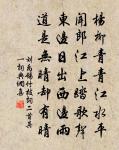 楊柳青青江水平
聞郎江上踏歌聲
東邊日出西邊雨
道是無晴却有晴
劉禹錫竹枝詞二首其
一詞典網書